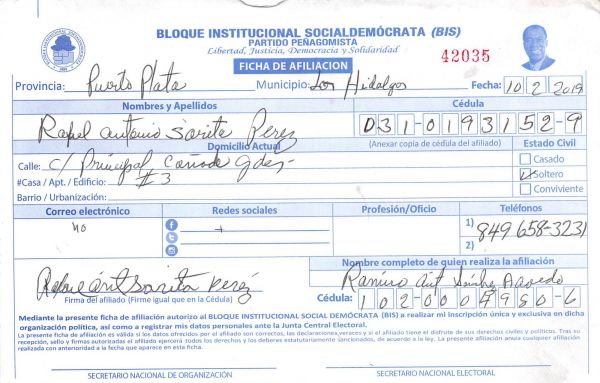 BLOQUE INSTITUCIONAL SOCIALDEMÓCRATA (BIS)
PARTIDO PEÑAGOMISTA
Libertad, Justicia, Democracia y Solidaridad
FICHA DE AFILIACION
42035
Provincia: Puerto Plata Municipio: Los Hidalgos Fecha: 10/2/2019
Nombres y Apellidos Cédula
Rafael Antonio Sarita Perez 031-0193152-9
Domicilio Actual (Anexar copia de cédula del afiliado) Estado Civil
Calle: C/ Principal Cañada Casado
#Casa / Apt. / Edificio: #3 Soltero
Barrio / Urbanización: Conviviente
Correo electrónico Redes sociales Profesión/Oficio Teléfonos
no 1) 849 658-3231
2)
Nombre completo de quien realiza la afiliación
Rafael Ant Sarita Perez Ramiro Ant Sánchez Acevedo
Firma del afiliado (Firme igual que en la Cédula) Cédula: 102-0004980-6
Mediante la presente ficha de afiliación autorizo al BLOQUE INSTITUCIONAL SOCIAL DEMÓCRATA (BIS) a realizar mi inscripción única y exclusiva en dicha
organización política, así como a registrar mis datos personales ante la Junta Central Electoral.
La presente ficha de afiliación es válida si los datos ofrecidos por el afiliado son correctos, las declaraciones veraces y si el afiliado tiene el disfrute de sus derechos civiles y políticos. Tras su
recepción, sello y firmas autorizadas el afiliado ejercerá todos los derechos y los deberes estatutariamente sancionados, de acuerdo a la ley. La presente afiliación anula cualquier afiliación
realizada con anterioridad a la fecha que aparece en esta ficha.
SECRETARIO NACIONAL DE ORGANIZACIÓN SECRETARIO NACIONAL ELECTORAL